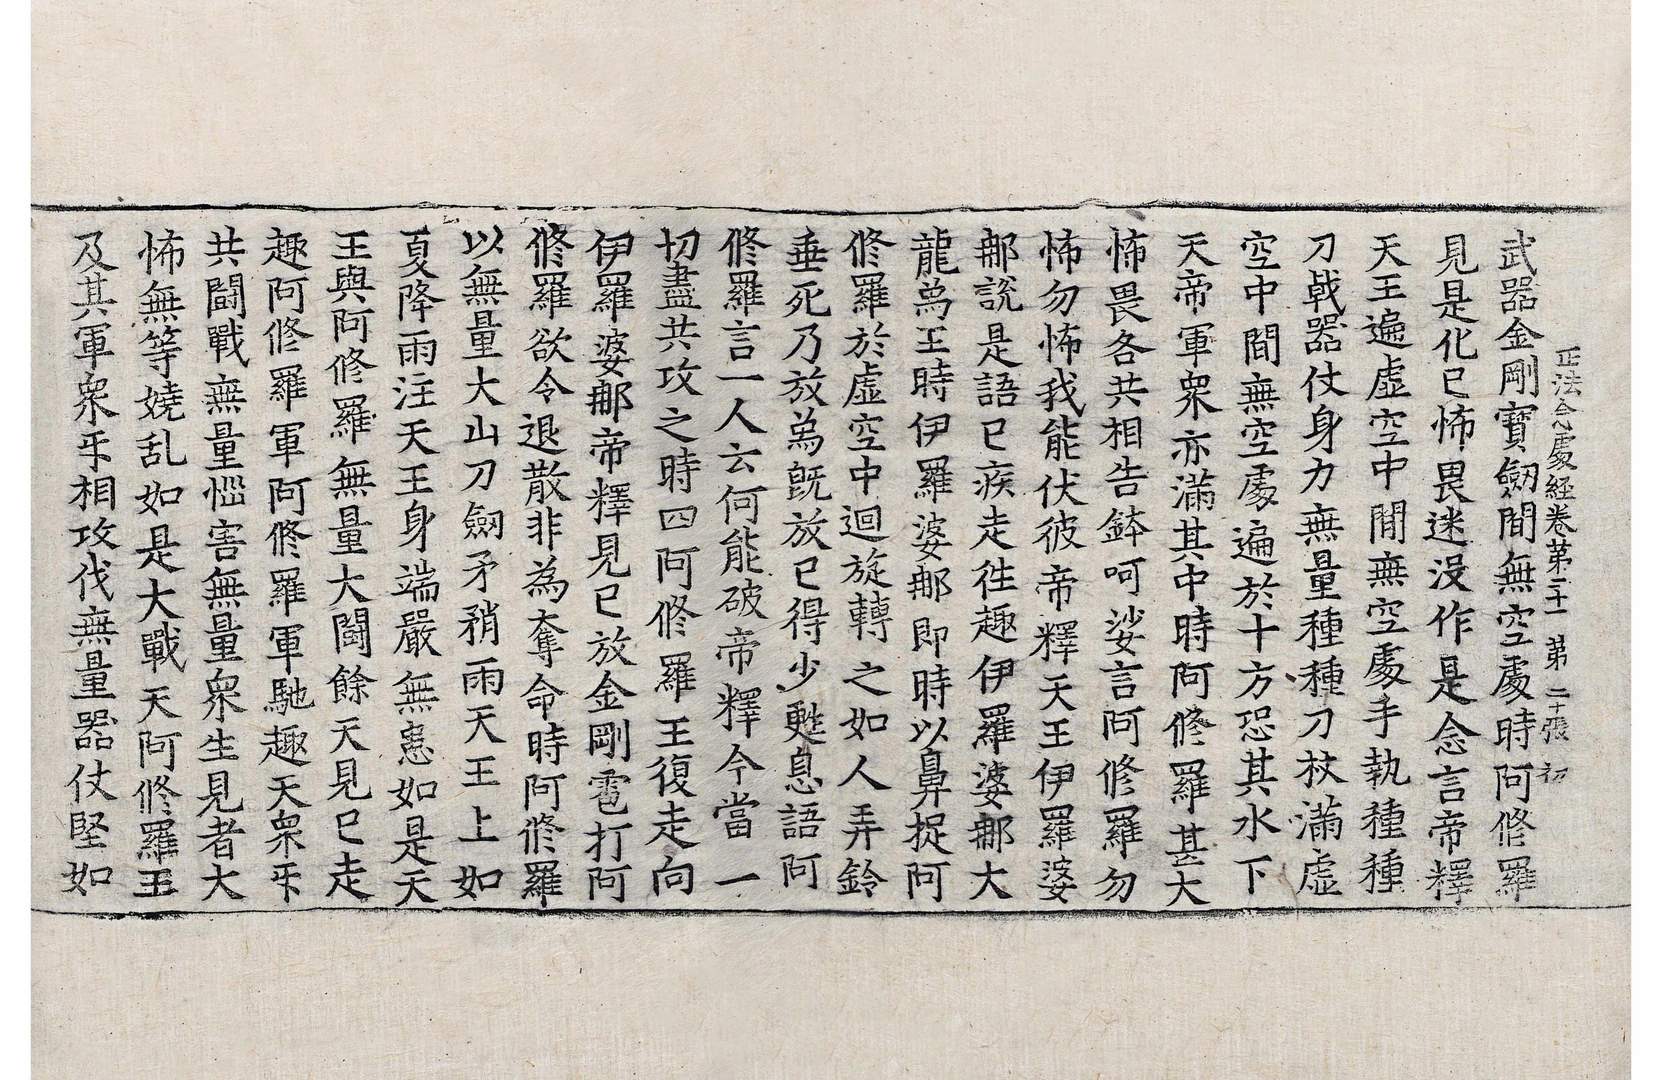 正法念處經卷第二十一 第二十張 初
武器金剛寶劒間無空處時阿修羅
見是化已怖畏迷没作是念言帝釋
天王遍虛空中間無空處手執種種
刀戟器仗身力無量種種刀杖滿虛
空中間無空處遍於十方恐其水下
天帝軍衆亦滿其中時阿修羅甚大
怖畏各共相告鉢呵娑言阿修羅勿
怖勿怖我能伏彼帝釋天王伊羅婆
郍說是語已疾走徃趣伊羅婆郍大
龍爲王時伊羅婆郍即時以鼻捉阿
修羅於虛空中迴旋轉之如人弄鈴
垂死乃放爲旣放已得少甦息語阿
修羅言一人云何能破帝釋今當一
切盡共攻之時四阿修羅王復走向
伊羅婆郍帝釋見已放金剛雹打阿
修羅欲令退散非為奪命時阿修羅
以無量大山刀劒矛矟雨天王上如
夏降雨注天王身端嚴無患如是天
王與阿修羅無量大鬪餘天見已走
趣阿修羅軍阿修羅軍馳趣天衆乐
共鬪戰無量惱害無量衆生見者大
怖無等嬈乱如是大戰天阿修羅王
及其軍衆乐相攻伐無量器仗堅如